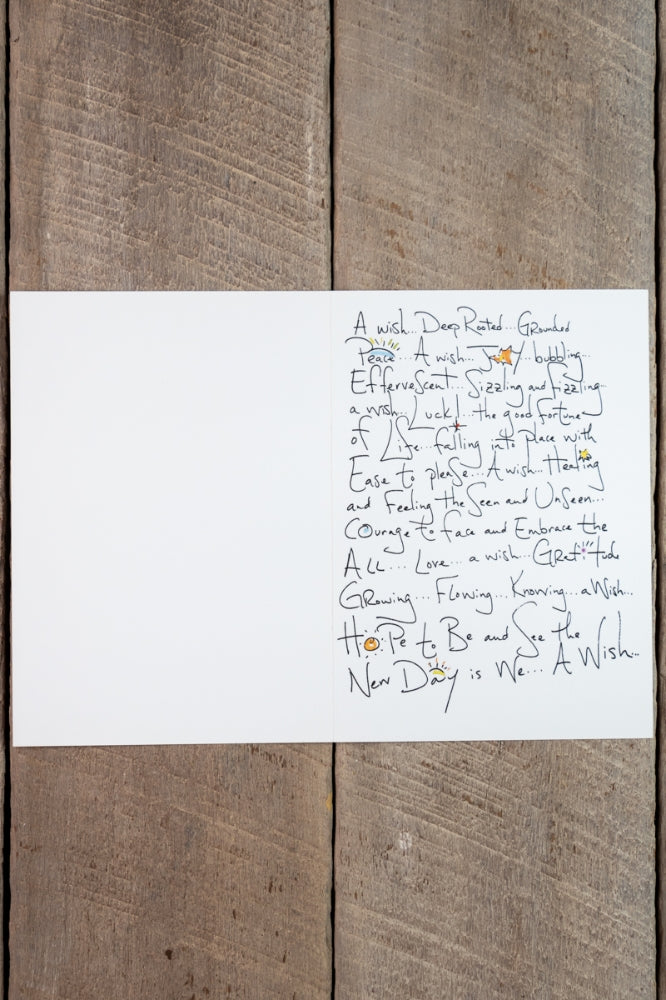 A wish... Deep Rooted... Grounded
Peace... A wish... Joy... bubbling...
Effervescent... Sizzling and fizzling...
a wish... Luck!... the good fortune
of Life... falling into place with
Ease to please... A wish... Healing
and Feeling the Seen and Unseen...
Courage to face and Embrace the
ALL... Love... a wish... Gratitude
Growing... Flowing... Knowing... a Wish...
Hope to Be and See the
New Day is We... A Wish...